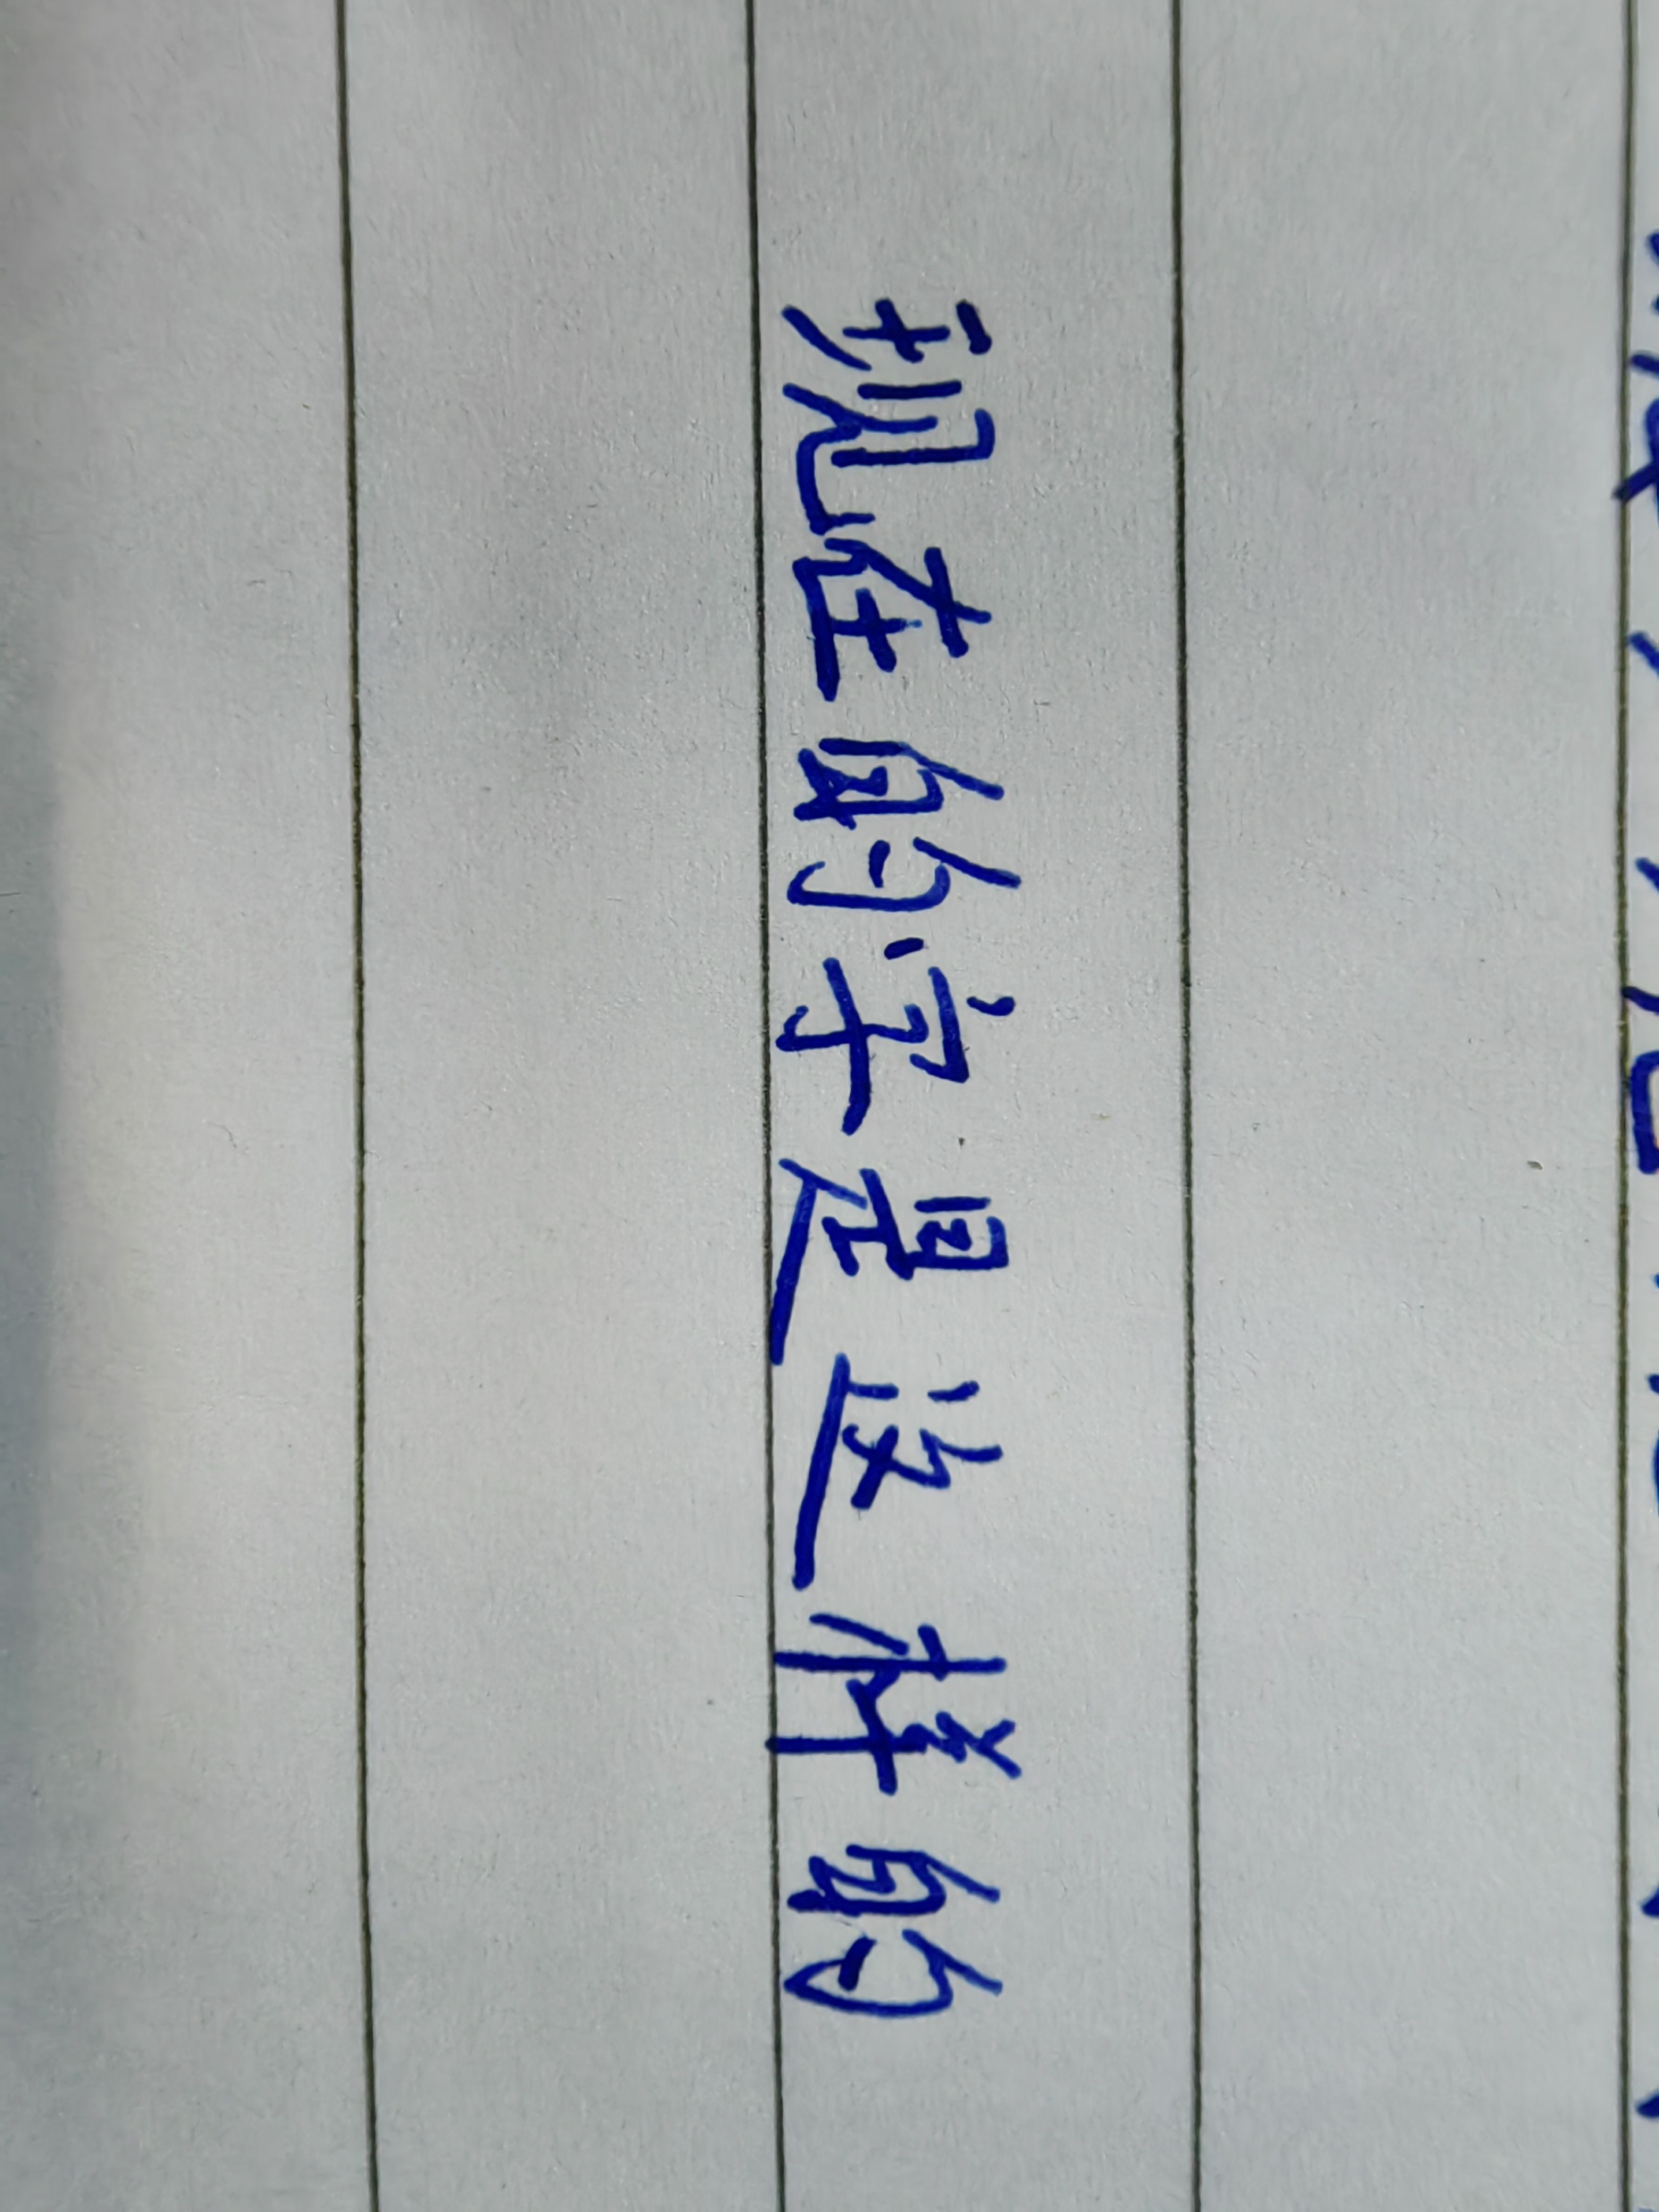 现在的字是这样的